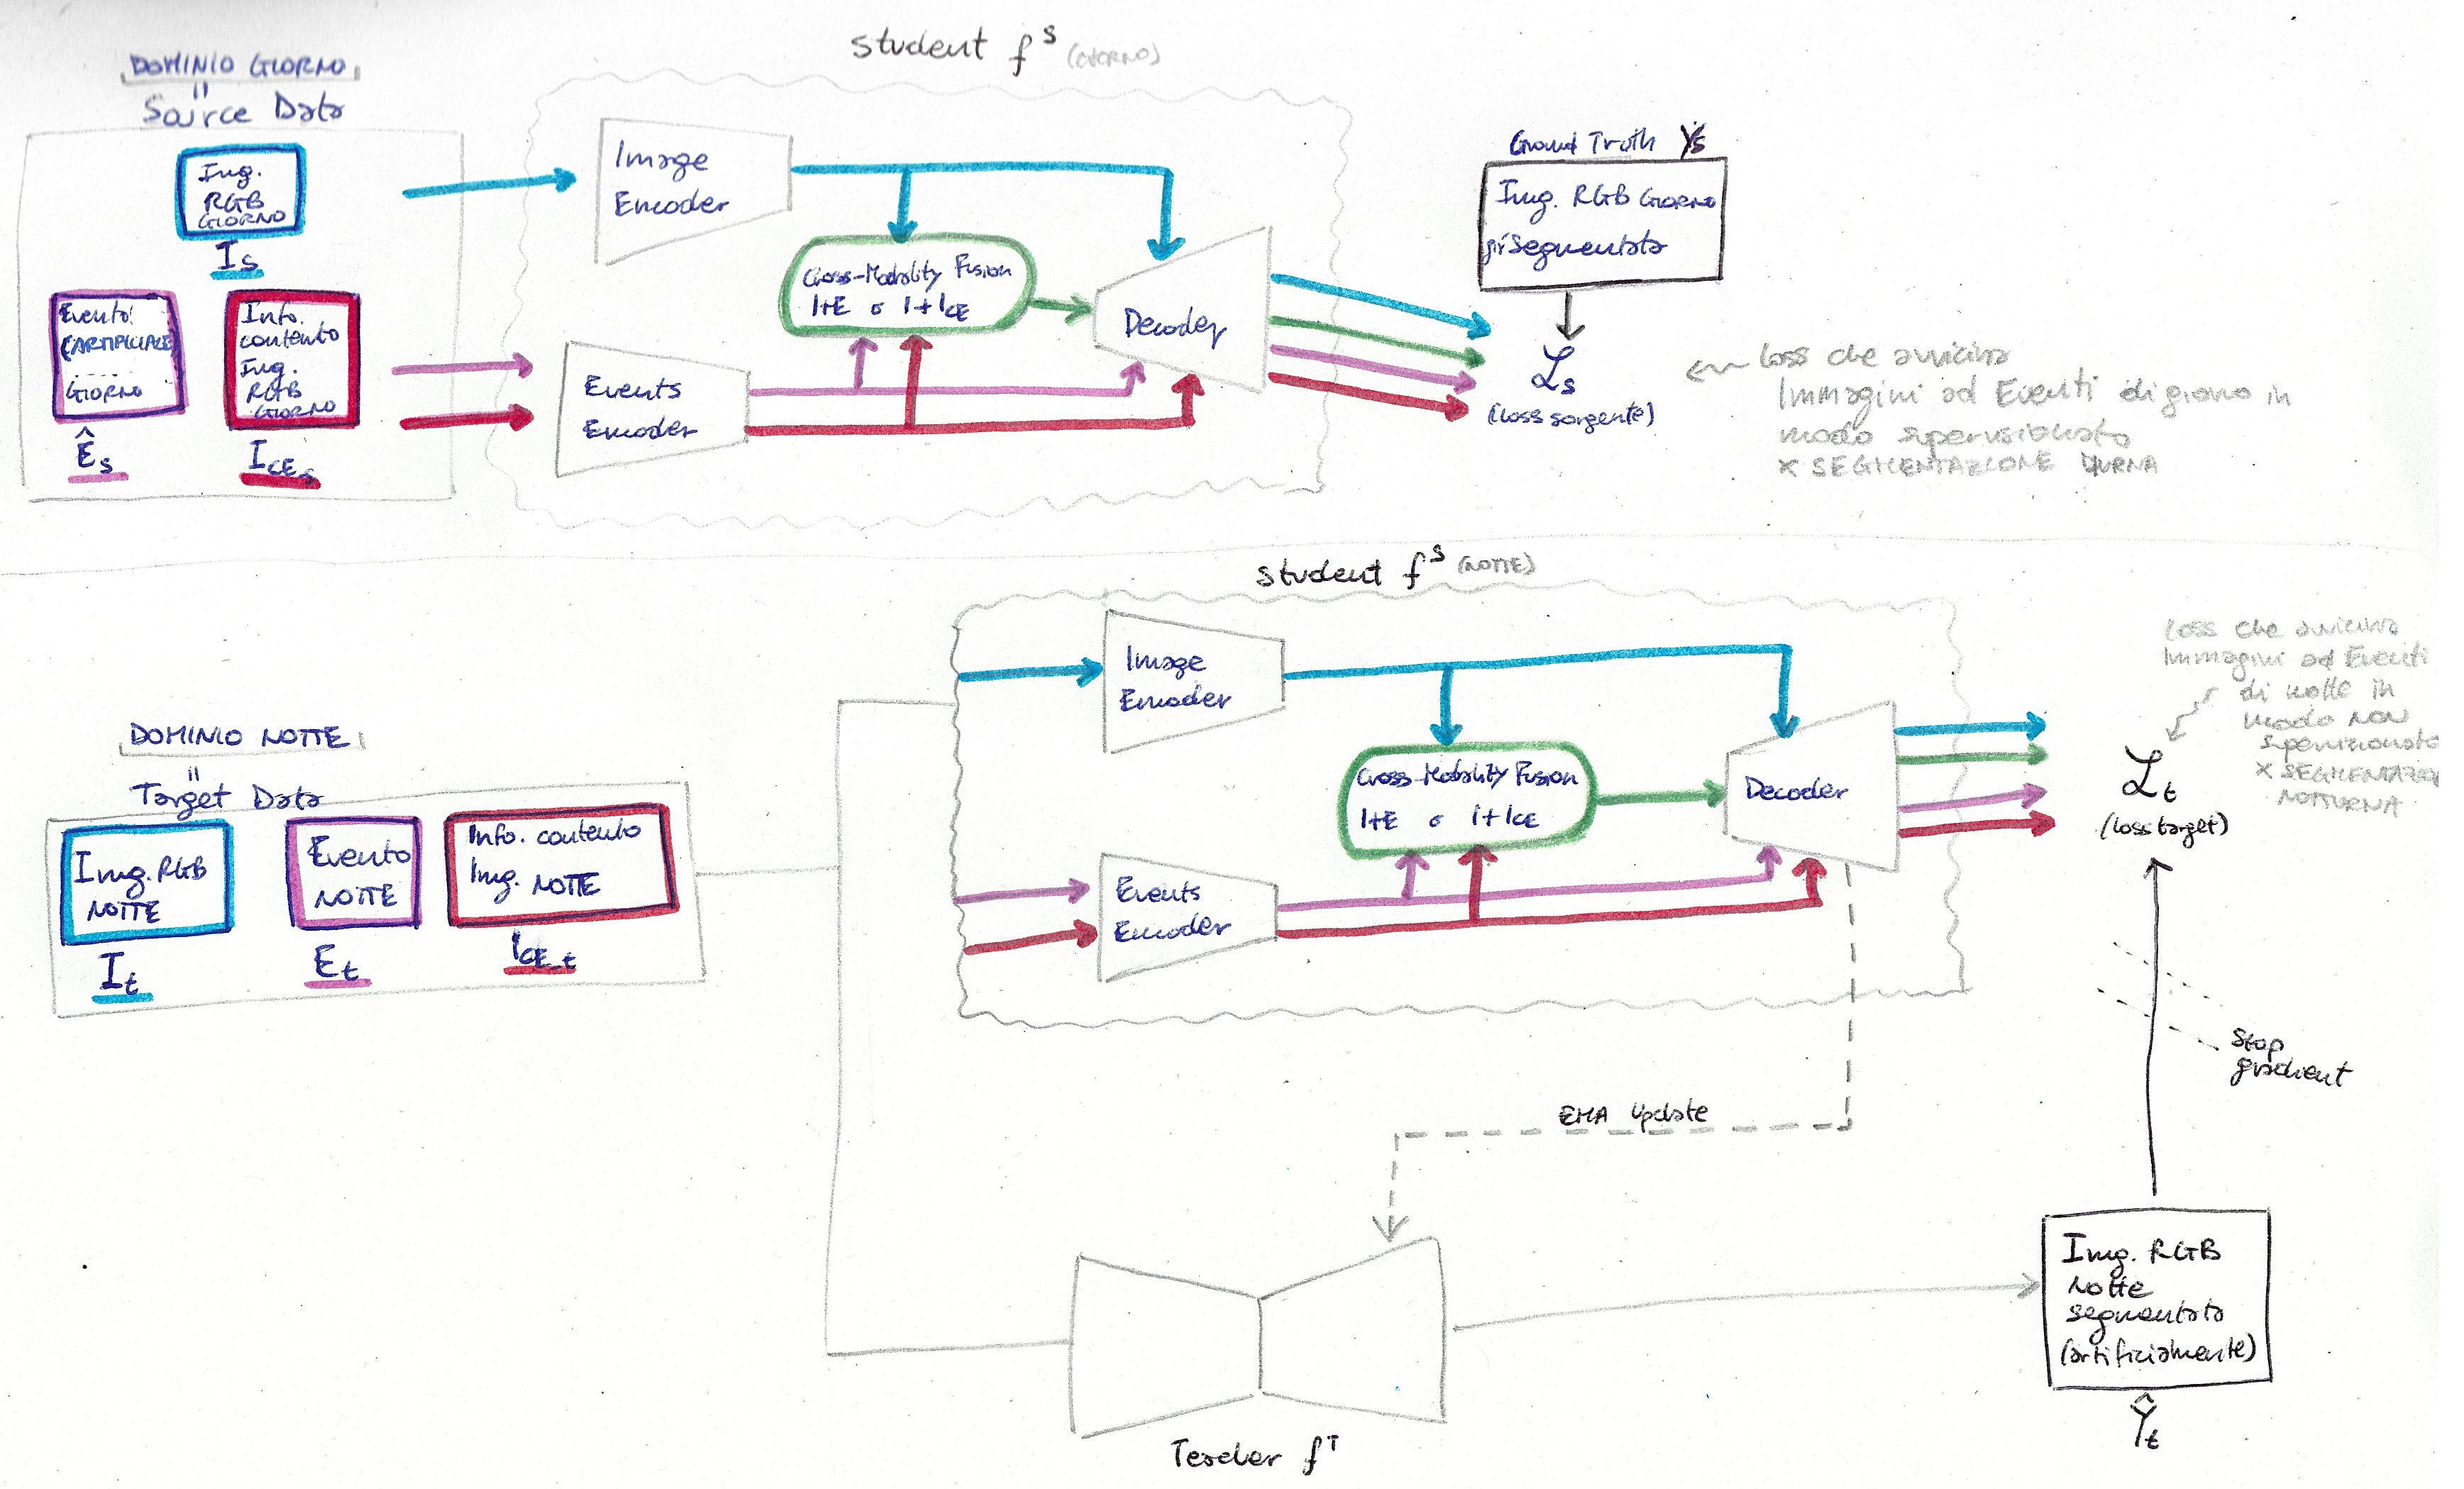 Student f^S (GIORNO)
DOMINIO GIORNO
=
Source Data
Img.
RGB
GIORNO
I_S
Evento
(ARTIFICIALE)
GIORNO
Ê_S
Info.
contenuto
Img.
RGB
GIORNO
I_CE_S
Image
Encoder
Events
Encoder
Cross-Modality Fusion
I+E o I+I_CE
Decoder
Ground Truth Y_S
Img. RGB Giorno
già segmentata
L_S
(loss sorgente)
loss che avvicina
Immagini ad Eventi di giorno in
modo supervisionato
x SEGMENTAZIONE DIURNA
Student f^S (NOTTE)
DOMINIO NOTTE
=
Target Data
Img. RGB
NOTTE
I_t
Evento
NOTTE
E_t
Info. contenuto
Img. NOTTE
I_CE_t
Image
Encoder
Events
Encoder
Cross-Modality Fusion
I+E o I+I_CE
Decoder
loss che avvicina
Immagini ad Eventi
di notte in
modo NON
supervisionato
x SEGMENTAZIO
NOTTURNA
L_t
(loss target)
Stop
gradient
EMA Update
Teacher f^T
Img. RGB
Notte
segmentata
(artificialmente)
Ŷ_t